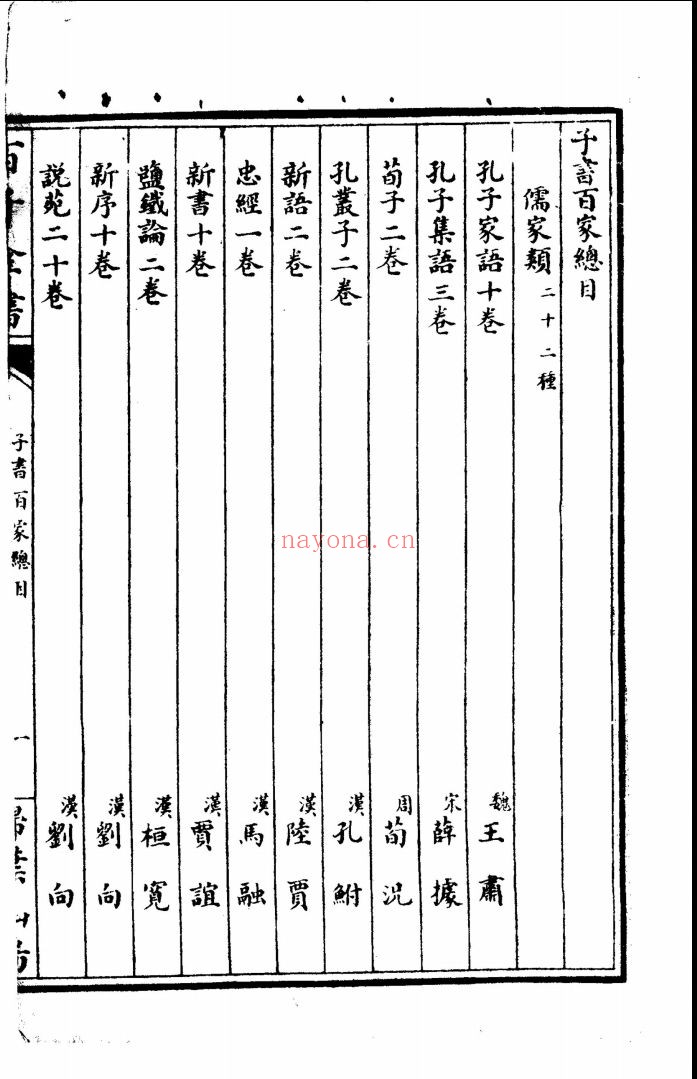 子書百家總目
儒家類二十二種
孔子家語十卷 魏王肅
孔子集語三卷 宋薛據
荀子二卷 周荀況
孔叢子二卷 漢孔鮒
新語二卷 漢陸賈
忠經一卷 漢馬融
新書十卷 漢賈誼
鹽鐵論二卷 漢桓寬
新序十卷 漢劉向
說苑二十卷 漢劉向
百子全書
子書百家總目
一
nayona.cn